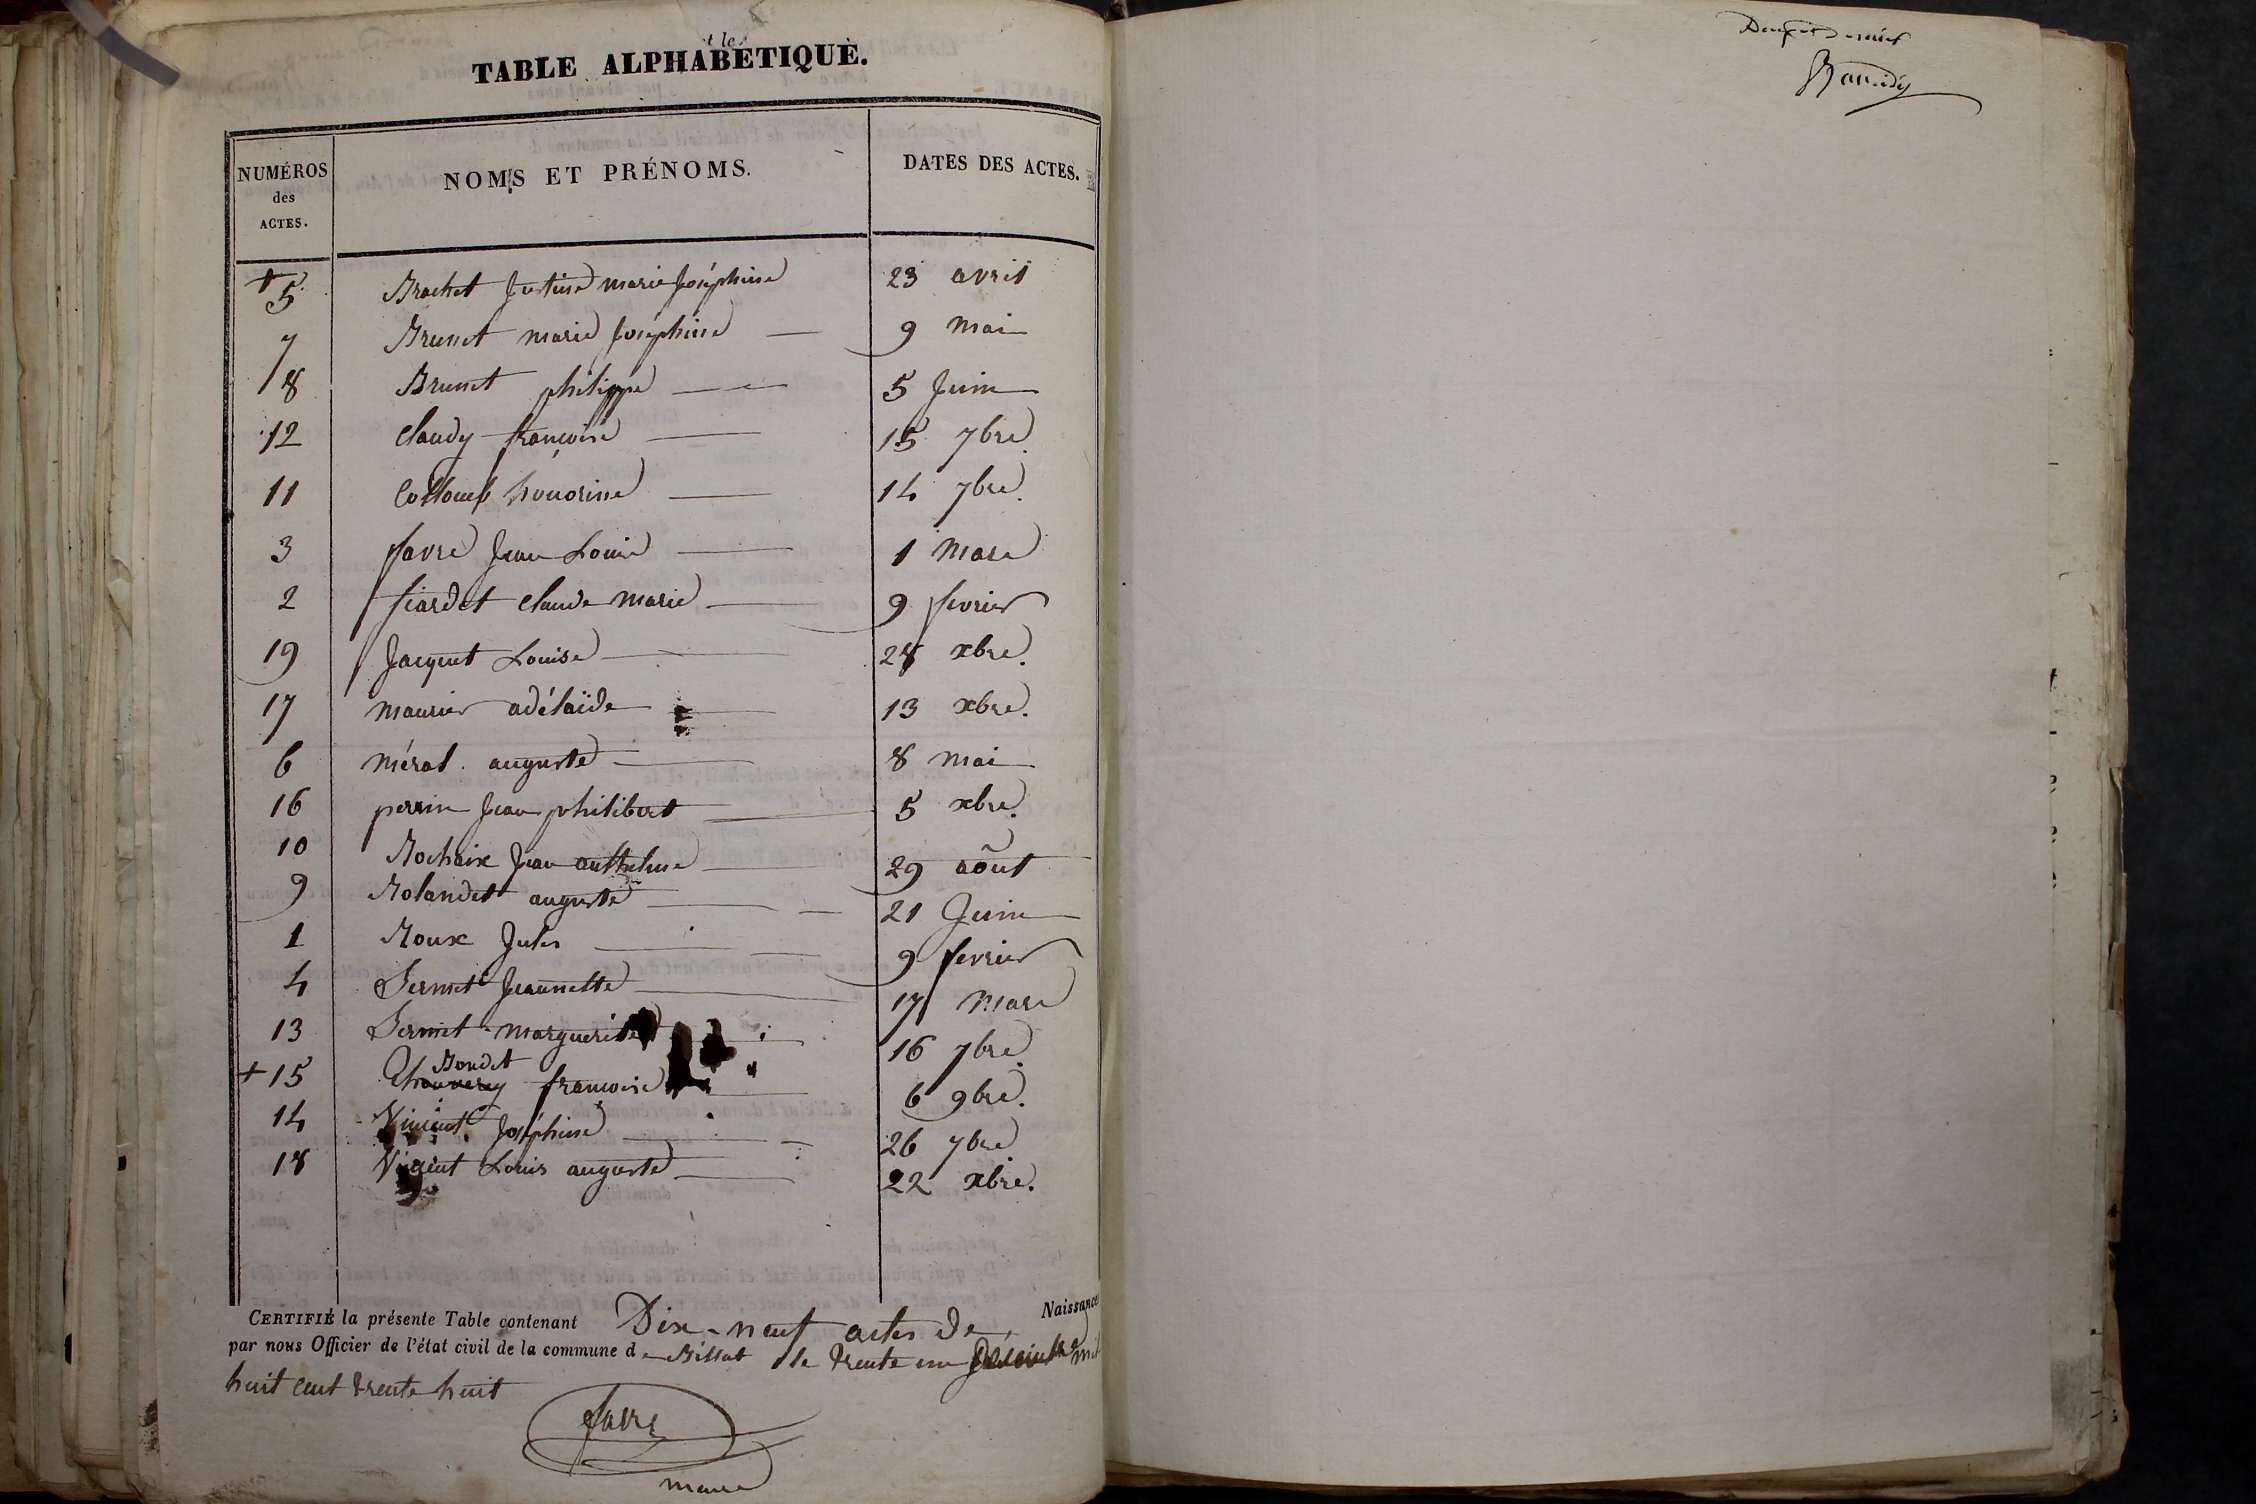 TABLE ALPHABÉTIQUE.
NUMÉROS des ACTES. NOMS ET PRÉNOMS. DATES DES ACTES.
+ 5 Brachet Justine marie Joséphine 23 avril
7 Brunet marie Joséphine 9 mai
8 Brunet philippe 5 Juin
12 Claudy françoise 15 7bre
11 Collomb honorine 14 7bre.
3 favre Jean Louis 1 Mars
2 fiardet Claude Marie 9 fevrier
19 Jacquet Louise 28 xbre.
17 maurier adélaïde 13 xbre.
6 méral auguste 8 mai
16 perrin Jean philibert 5 xbre.
10 Rochaix Jean anthelme 29 août
9 Rolandet auguste 21 Juin
1 Roux Jules 9 fevrier
4 Sermet Jeannette 17 Mars
13 Sermet marguerite 16 7bre
Bondet
+ 15 françoise 6 9bre.
14 Vincent Joséphine 26 7bre
18 Vincent Louis auguste 22 xbre.
CERTIFIÉ la présente Table contenant Dix-neuf actes de Naissance
par nous Officier de l'état civil de la commune de Billiat le trente un Décembre mil
huit cent trente huit
favre
maire